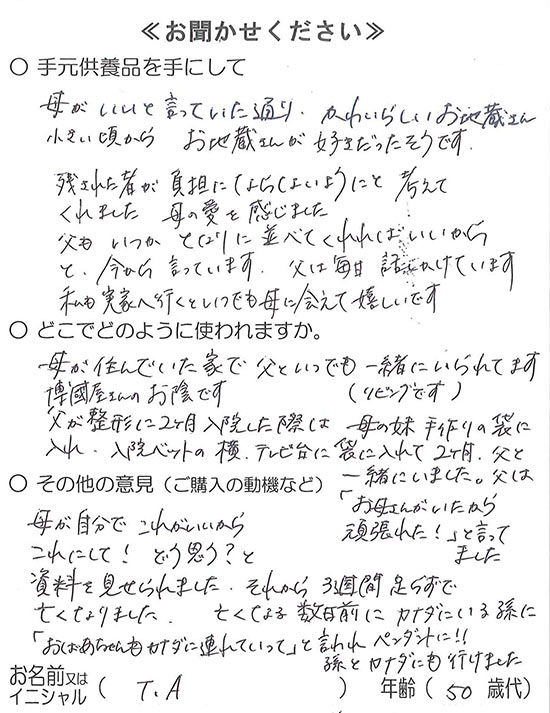 ≪お聞かせください≫
○ 手元供養品を手にして
母が いいと言っていた通り、かわいらしいお地蔵さん
小さい頃から お地蔵さんが好きだったそうです。
残された者が負担にならないようにと 考えて
くれました 母の愛を感じました
父も いつか となりに並べてくれればいいから
と、今から言っています。父は毎日 話しかけています
私も実家へ行くといつでも母に会えて嬉しいです
○ どこでどのように使われますか。
母が住んでいた家で 父といつでも一緒にいられてます
博國屋さんのお陰です (リビングです)
父が整形に2ヶ月入院した際は 母の妹手作りの袋に
入れ、入院ベットの横、テレビ台に袋に入れて2ヶ月、父と
一緒にいました。父は
「お母さんがいたから
頑張れた!」と言って
ました
○ その他の意見（ご購入の動機など）
母が自分で これがいいから
これにして! どう思う?と
資料を見せられました。それから 3週間足らずで
亡くなりました。 亡くなる数日前に カナダにいる孫に
「おばあちゃんもカナダに連れていって」と言われ ペンダントに!!
孫とカナダにも行けました
お名前又は
イニシャル ( T.A ) 年齢 ( 50 歳代)